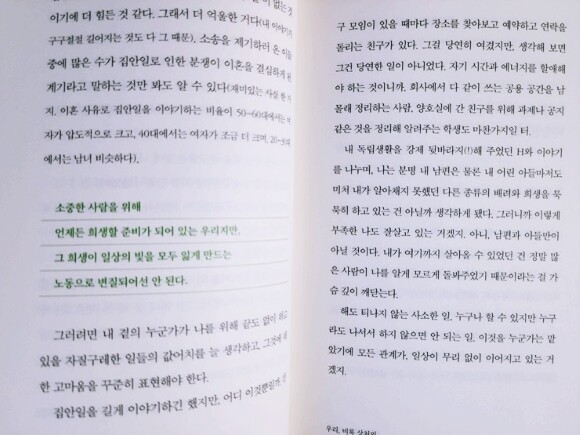 이기에 더 힘든 것 같다. 그래서 더 억울한 거다(내 이야기가
구구절절 길어지는 것도 다 그 때문). 소송을 제기하러 온 이들
중에 많은 수가 집안일로 인한 분쟁이 이혼을 결심하게 된
계기라고 말하는 것만 봐도 알 수 있다(재미있는 사실 한 가
지. 이혼 사유로 집안일을 이야기하는 비율이 50~60대에서는 여
자가 압도적으로 크고, 40대에서는 여자가 조금 더 크며, 20~30대
에서는 남녀 비슷하다).
소중한 사람을 위해
언제든 희생할 준비가 되어 있는 우리지만,
그 희생이 일상의 빛을 모두 잃게 만드는
노동으로 변질되어선 안 된다.
그러려면 내 곁의 누군가가 나를 위해 끝도 없이 하고
있을 자질구레한 일들의 값어치를 늘 생각하고, 그것에 대
한 고마움을 꾸준히 표현해야 한다.
집안일을 길게 이야기하긴 했지만, 어디 이것뿐일까.
구 모임이 있을 때마다 장소를 찾아보고 예약하고 연락을
돌리는 친구가 있다. 그걸 당연히 여겼지만, 생각해 보면
그건 당연한 일이 아니었다. 자기 시간과 에너지를 할애해
야 하는 것이니까. 회사에서 다 같이 쓰는 공용 공간을 남
몰래 정리하는 사람, 양호실에 간 친구를 위해 과제나 공지
같은 것을 정리해 알려주는 학생도 마찬가지일 터.
내 독립생활을 강제 뒷바라지(!)해 주었던 H와 이야기
를 나누며, 나는 분명 내 남편은 물론 내 어린 아들마저도
미처 내가 알아채지 못했던 다른 종류의 배려와 희생을 묵
묵히 하고 있는 건 아닐까 생각하게 됐다. 그러니까 이렇게
부족한 나도 잘살고 있는 거겠지. 아니, 남편과 아들만이
아닐 것이다. 내가 여기까지 살아올 수 있었던 건 정말 많
은 사람이 나를 알게 모르게 돌봐주었기 때문이라는 걸 가
슴 깊이 깨닫는다.
해도 티나지 않는 사소한 일, 누구나 할 수 있지만 누구
라도 나서서 하지 않으면 안 되는 일. 이것을 누군가는 맡
았기에 모든 관계가, 일상이 무리 없이 이어지고 있는 거
겠지.
우리, 비록